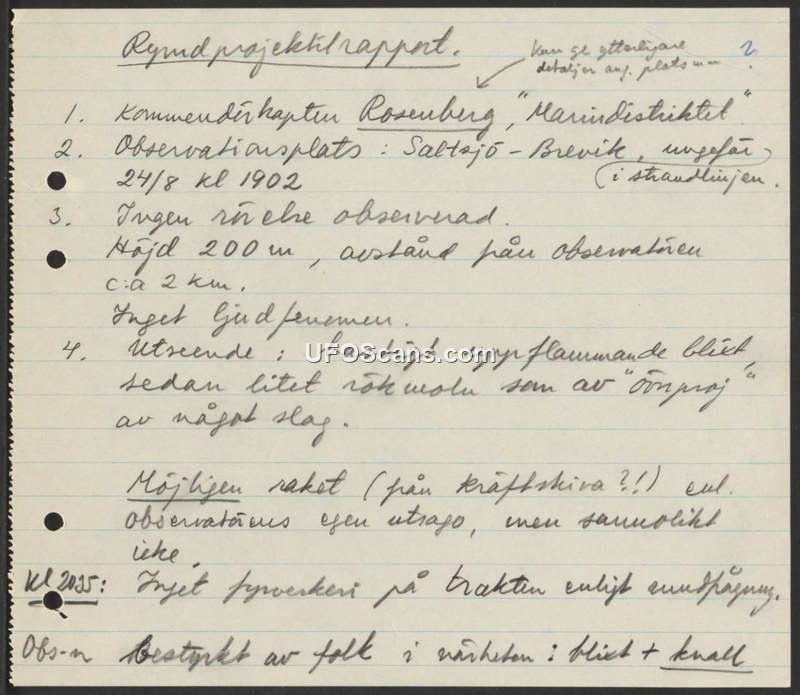 Rymdprojektilrapport.
Kan ge ytterligare
detaljer ang. platsen
2
1. Kommendörkapten Rosenberg, "Marindistriktet"
2. Observationsplats: Saltsjö-Brevik, ungefär
i strandlinjen.
24/8 kl 1902
3. Ingen rörelse observerad.
Höjd 200 m, avstånd från observatören
c:a 2 km.
Inget ljudfenomen.
4. Utseende: uppflammande blixt,
UFOScans.com
sedan litet rökmoln som av "övnproj"
av något slag.
Möjligen raket (från kräftskiva?!) enl.
observatörens egen utsago, men sannolikt
icke.
Kl 2035: Inget fyrverkeri på trakten enligt rundfrågning.
Obs-n bestyrkt av folk i närheten: blixt + knall